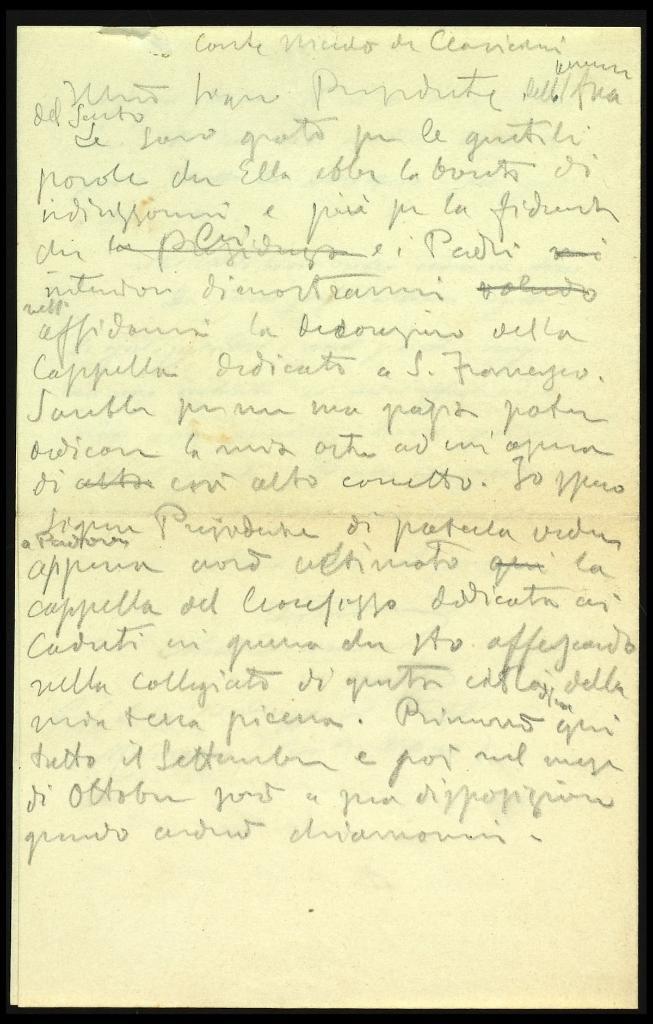 Conte de Claricini
Signor Presidente dell'
del Santo
Le sono grato per le gentili
parole che Ella ebbe la bontà di
indirizzarmi e più per la fiducia
che la Presidenza e i Padri mi
intendon dimostrarmi volendo
nell'
affidarmi la decorazione della
Cappella dedicata a S. Francesco.
Sarebbe per me una gioja poter
dedicare la mia arte ad un'opera
di alto così alto concetto. Io spero
Signor Presidente di poterla vedere
a Padova
appena avrò ultimato qui la
cappella del Crocefisso dedicata ai
Caduti in guerra che sto affrescando
nella Collegiata di questa della
mia terra picena. Rimarrò qui
tutto il Settembre e poi nel mese
di Ottobre sarò a sua disposizione
quando crederà chiamarmi.